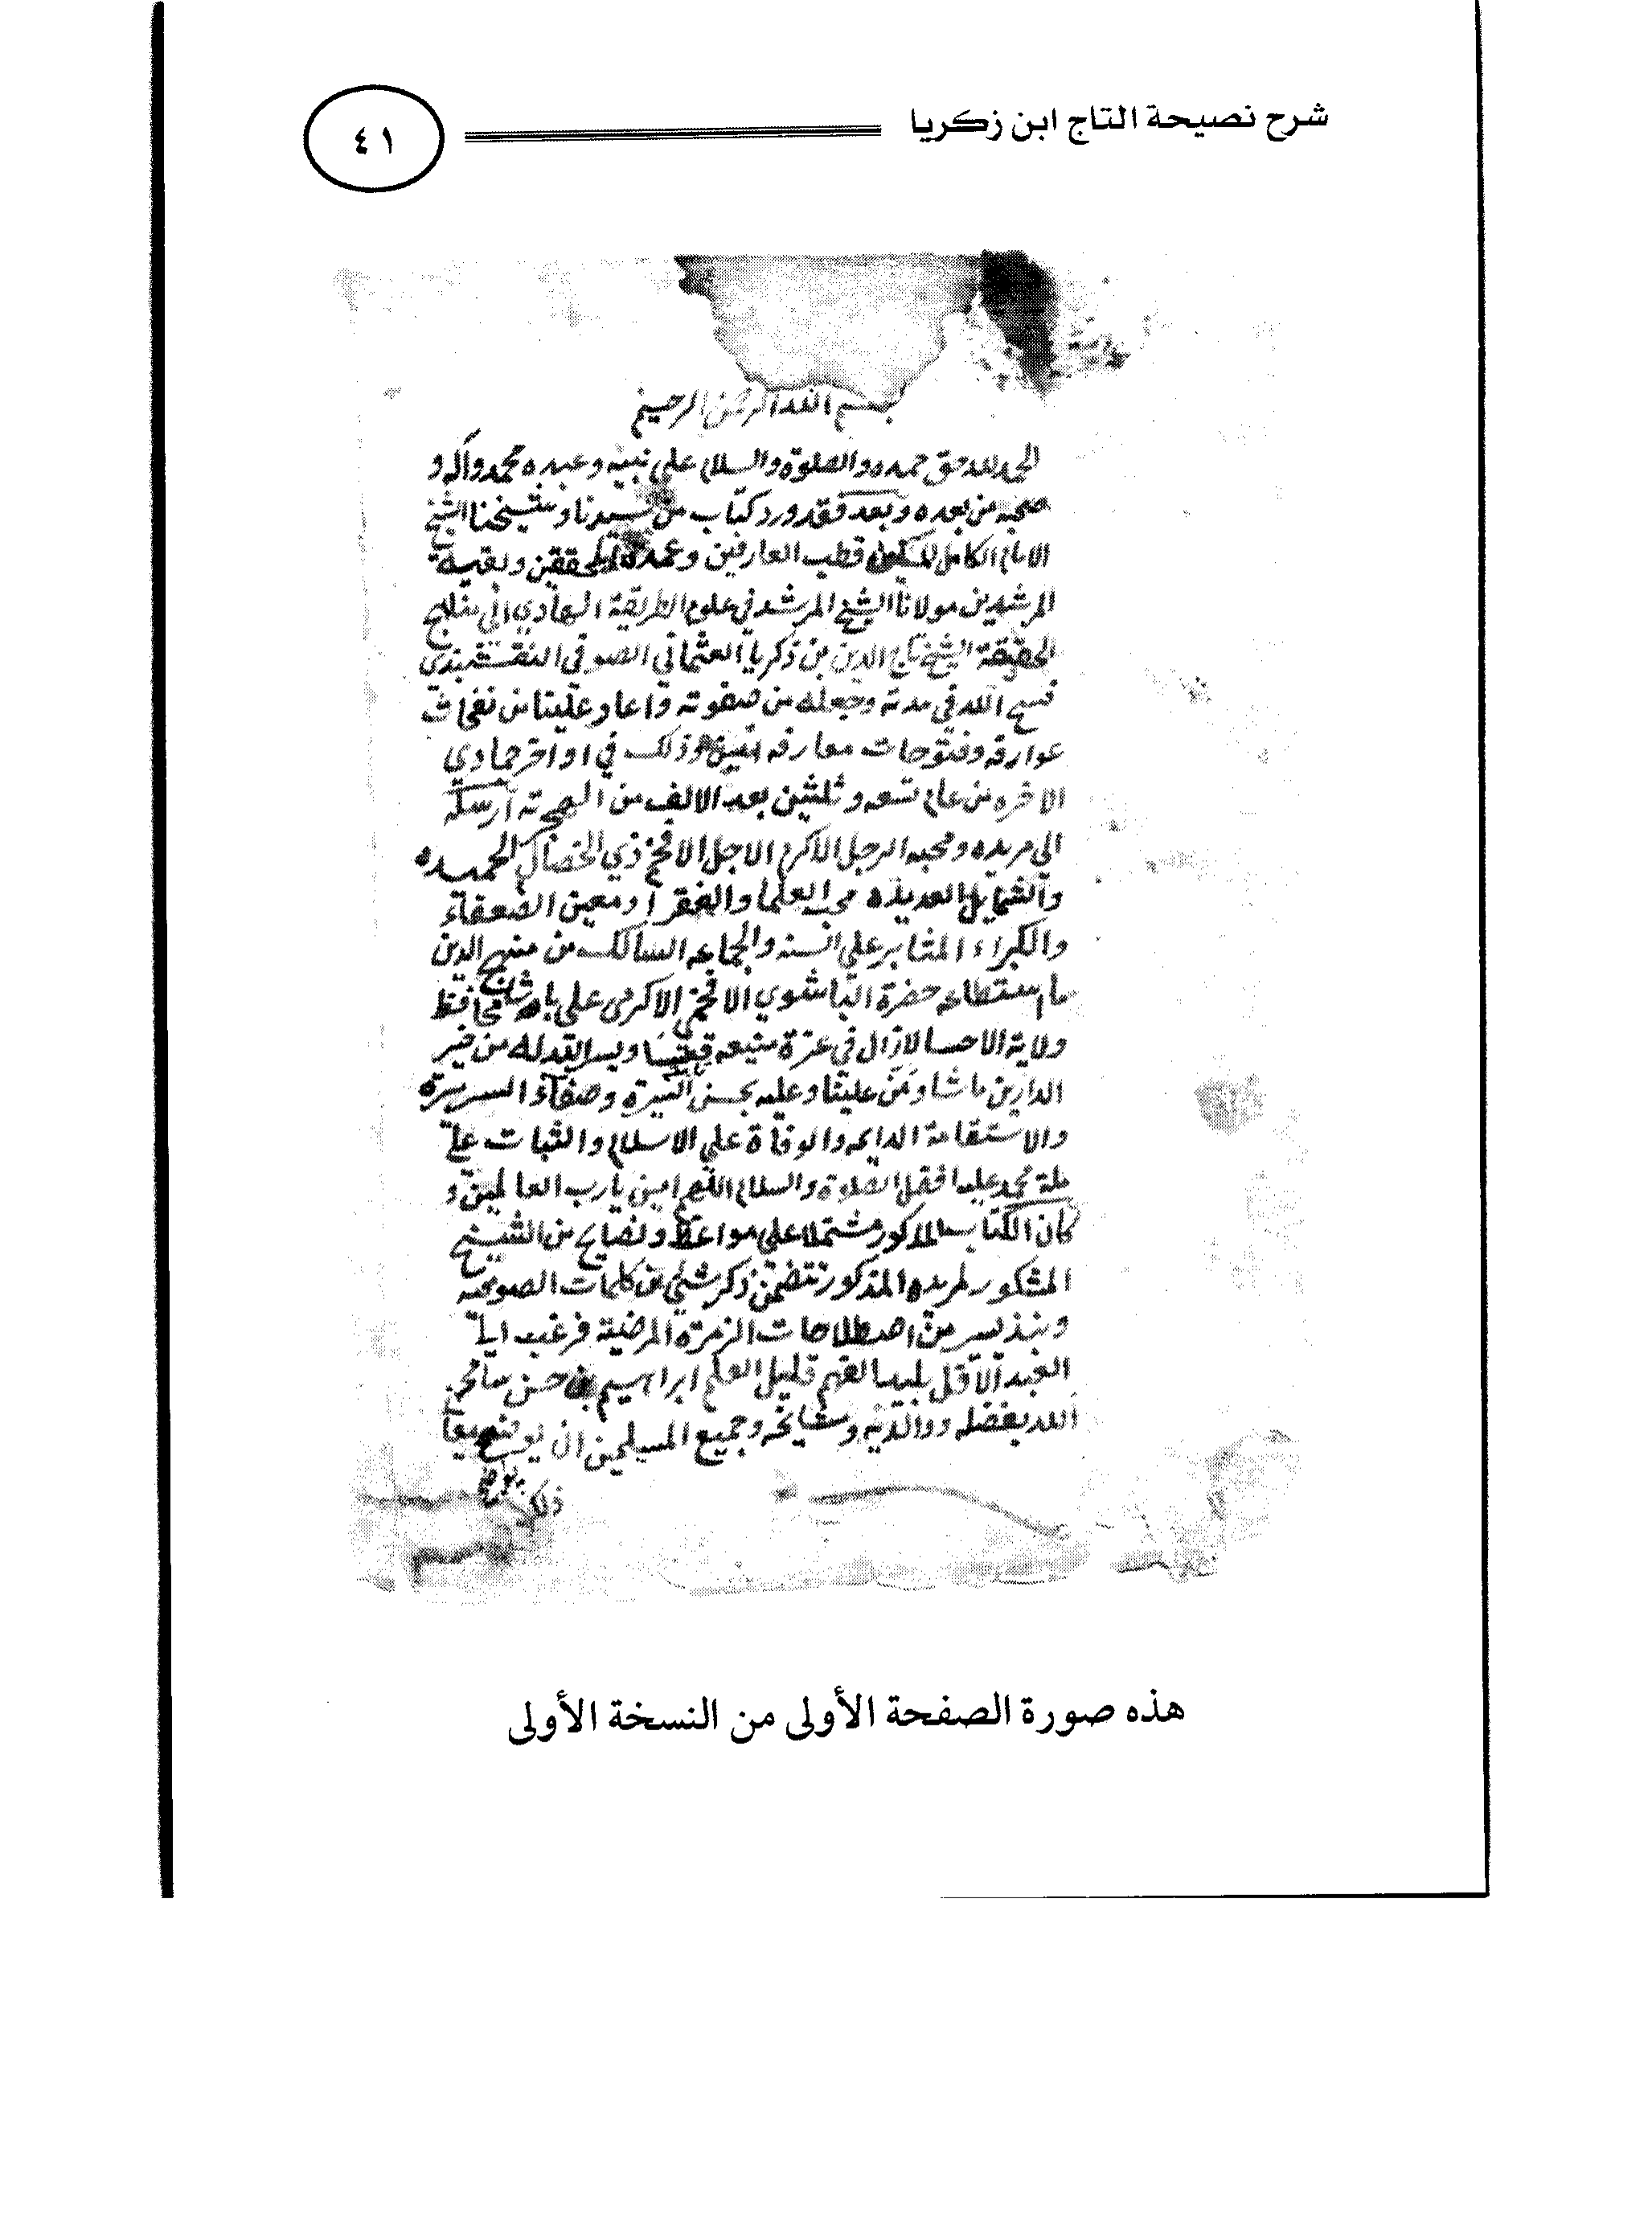 شرح نصيحة التاج ابن زكريا
٤١
بسم الله الرحمن الرحيم
الحمد لله حق حمده والصلوة والسلام على نبيه وعبده محمد وآله و
صحبه من بعده وبعد فقد ورد كتاب من سيدنا وشيخنا الشيخ
الامام الكامل المكمل قطب العارفين وعمدة المحققين وبقية
المرشدين مولانا الشيخ المرشد في علوم الطريقة الهادي الى مناهج
الحقيقة الشيخ تاج الدين بن زكريا العثماني الصوفي النقشبندي
فسح الله في مدته وجعله من صفوته واعاد علينا من نفحات
عوارفه وفتوحات معارفه امين وذلك في اواخر جمادى
الاخره من عام تسعه وثلثين بعد الالف من الهجرة ارسله
الى مريده ومحبه الرجل الاكرم الاجل الافخم ذي الخصال الحميده
والشمايل العديده محب العلما والفقرا ومعين الضعفاء
والكبراء المثابر على السنه والجماعه السالك من منهج الدين
ما استطاعه حضرة الباشوي الافخمي الاكرمى علي باشا محافظ
ولاية الاحسا لازال في عزة منيعه ويسر الله له من خير
الدارين ماشا ومن علينا وعليه بحسن السيرة وصفاء السريرة
والاستقامة الدايمه والوفاة على الاسلام والثبات على
ملة محمد عليه افضل الصلوة والسلام اللهم امين يارب العالمين و
كان الكتاب المذكور مشتملا على مواعظ ونصايح من الشيخ
المشكور لمريده المذكور تتضمن ذكر شيئ من كلمات الصوفيه
ونبذ يسير من اصطلاحات الزمرة المرضية فرغب الي
العبد الاقل بليد الفهم قليل العلم ابراهيم بن حسن سامحه
الله بفضله ووالديه ومشايخه وجميع المسلمين ان
ذلك
هذه صورة الصفحة الأولى من النسخة الأولى